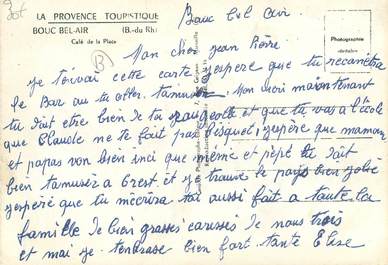 LA PROVENCE TOURISTIQUE
BOUC BEL-AIR (B.-du Rh)
Café de la Place
Bouc Bel Air
Photographie
véritable
Mon cher Jean Pière
je t'envai cette carte j'espère que tu recanètra
le Bar au tu allez t'amuser. Mon cheri maintenant
tu dait être bien de ta et que tu vas a l'écôle
que Claude ne te fait pas j'espère que maman
et papas von bien inci que mémé et pépé tu dait
bien t'amusér a Crest et je trauve le pays bien jolie
j'espère que tu m'écrira tai aussi fait a taute la
famille de bien grasses caresses de nous trois
et mai je t'enbrasse bien fort. tante Elise